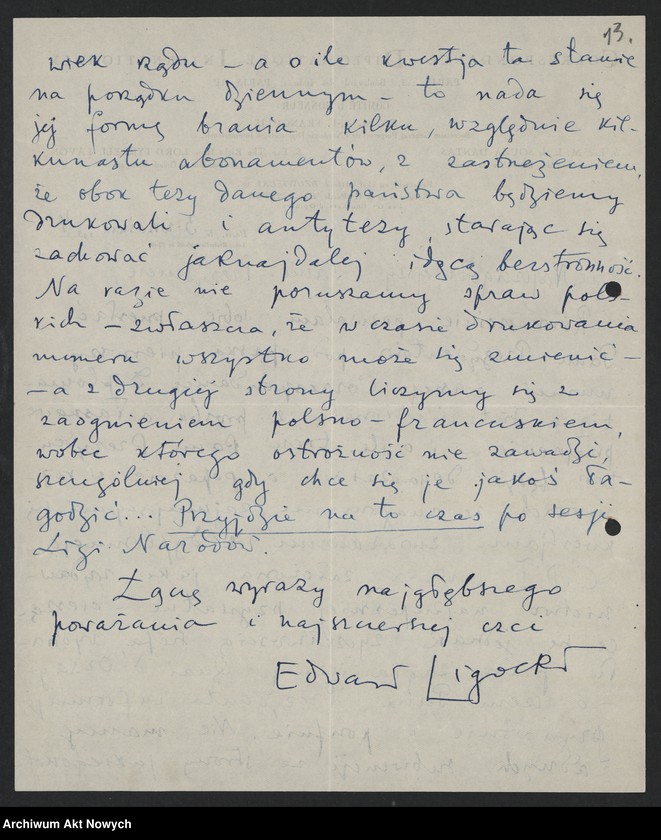 13.
wiek rządu – a o ile kwestja ta stanie
na porządku dziennym – to nada się
jej formę brania kilku, względnie kil-
kunastu abonamentów, z zastrzeżeniem,
że obok tezy danego państwa będziemy
drukowali i antytezy, starając się
zachować jaknajdalej idącą bezstronność.
Na razie nie poruszamy spraw pols-
kich – zwłaszcza, że w czasie drukowania
numeru wszystko może się zmienić –
– a z drugiej strony liczymy się z
zaognieniem polsko-francuskiem,
wobec którego ostrożność nie zawadzi,
szczególniej gdy chce się je jakoś ła-
godzić... Przyjdzie na to czas po sesji
Ligi Narodów.
Łączę wyrazy najgłębszego
poważania i najszczerszej czci
Edward Ligocki
Archiwum Akt Nowych